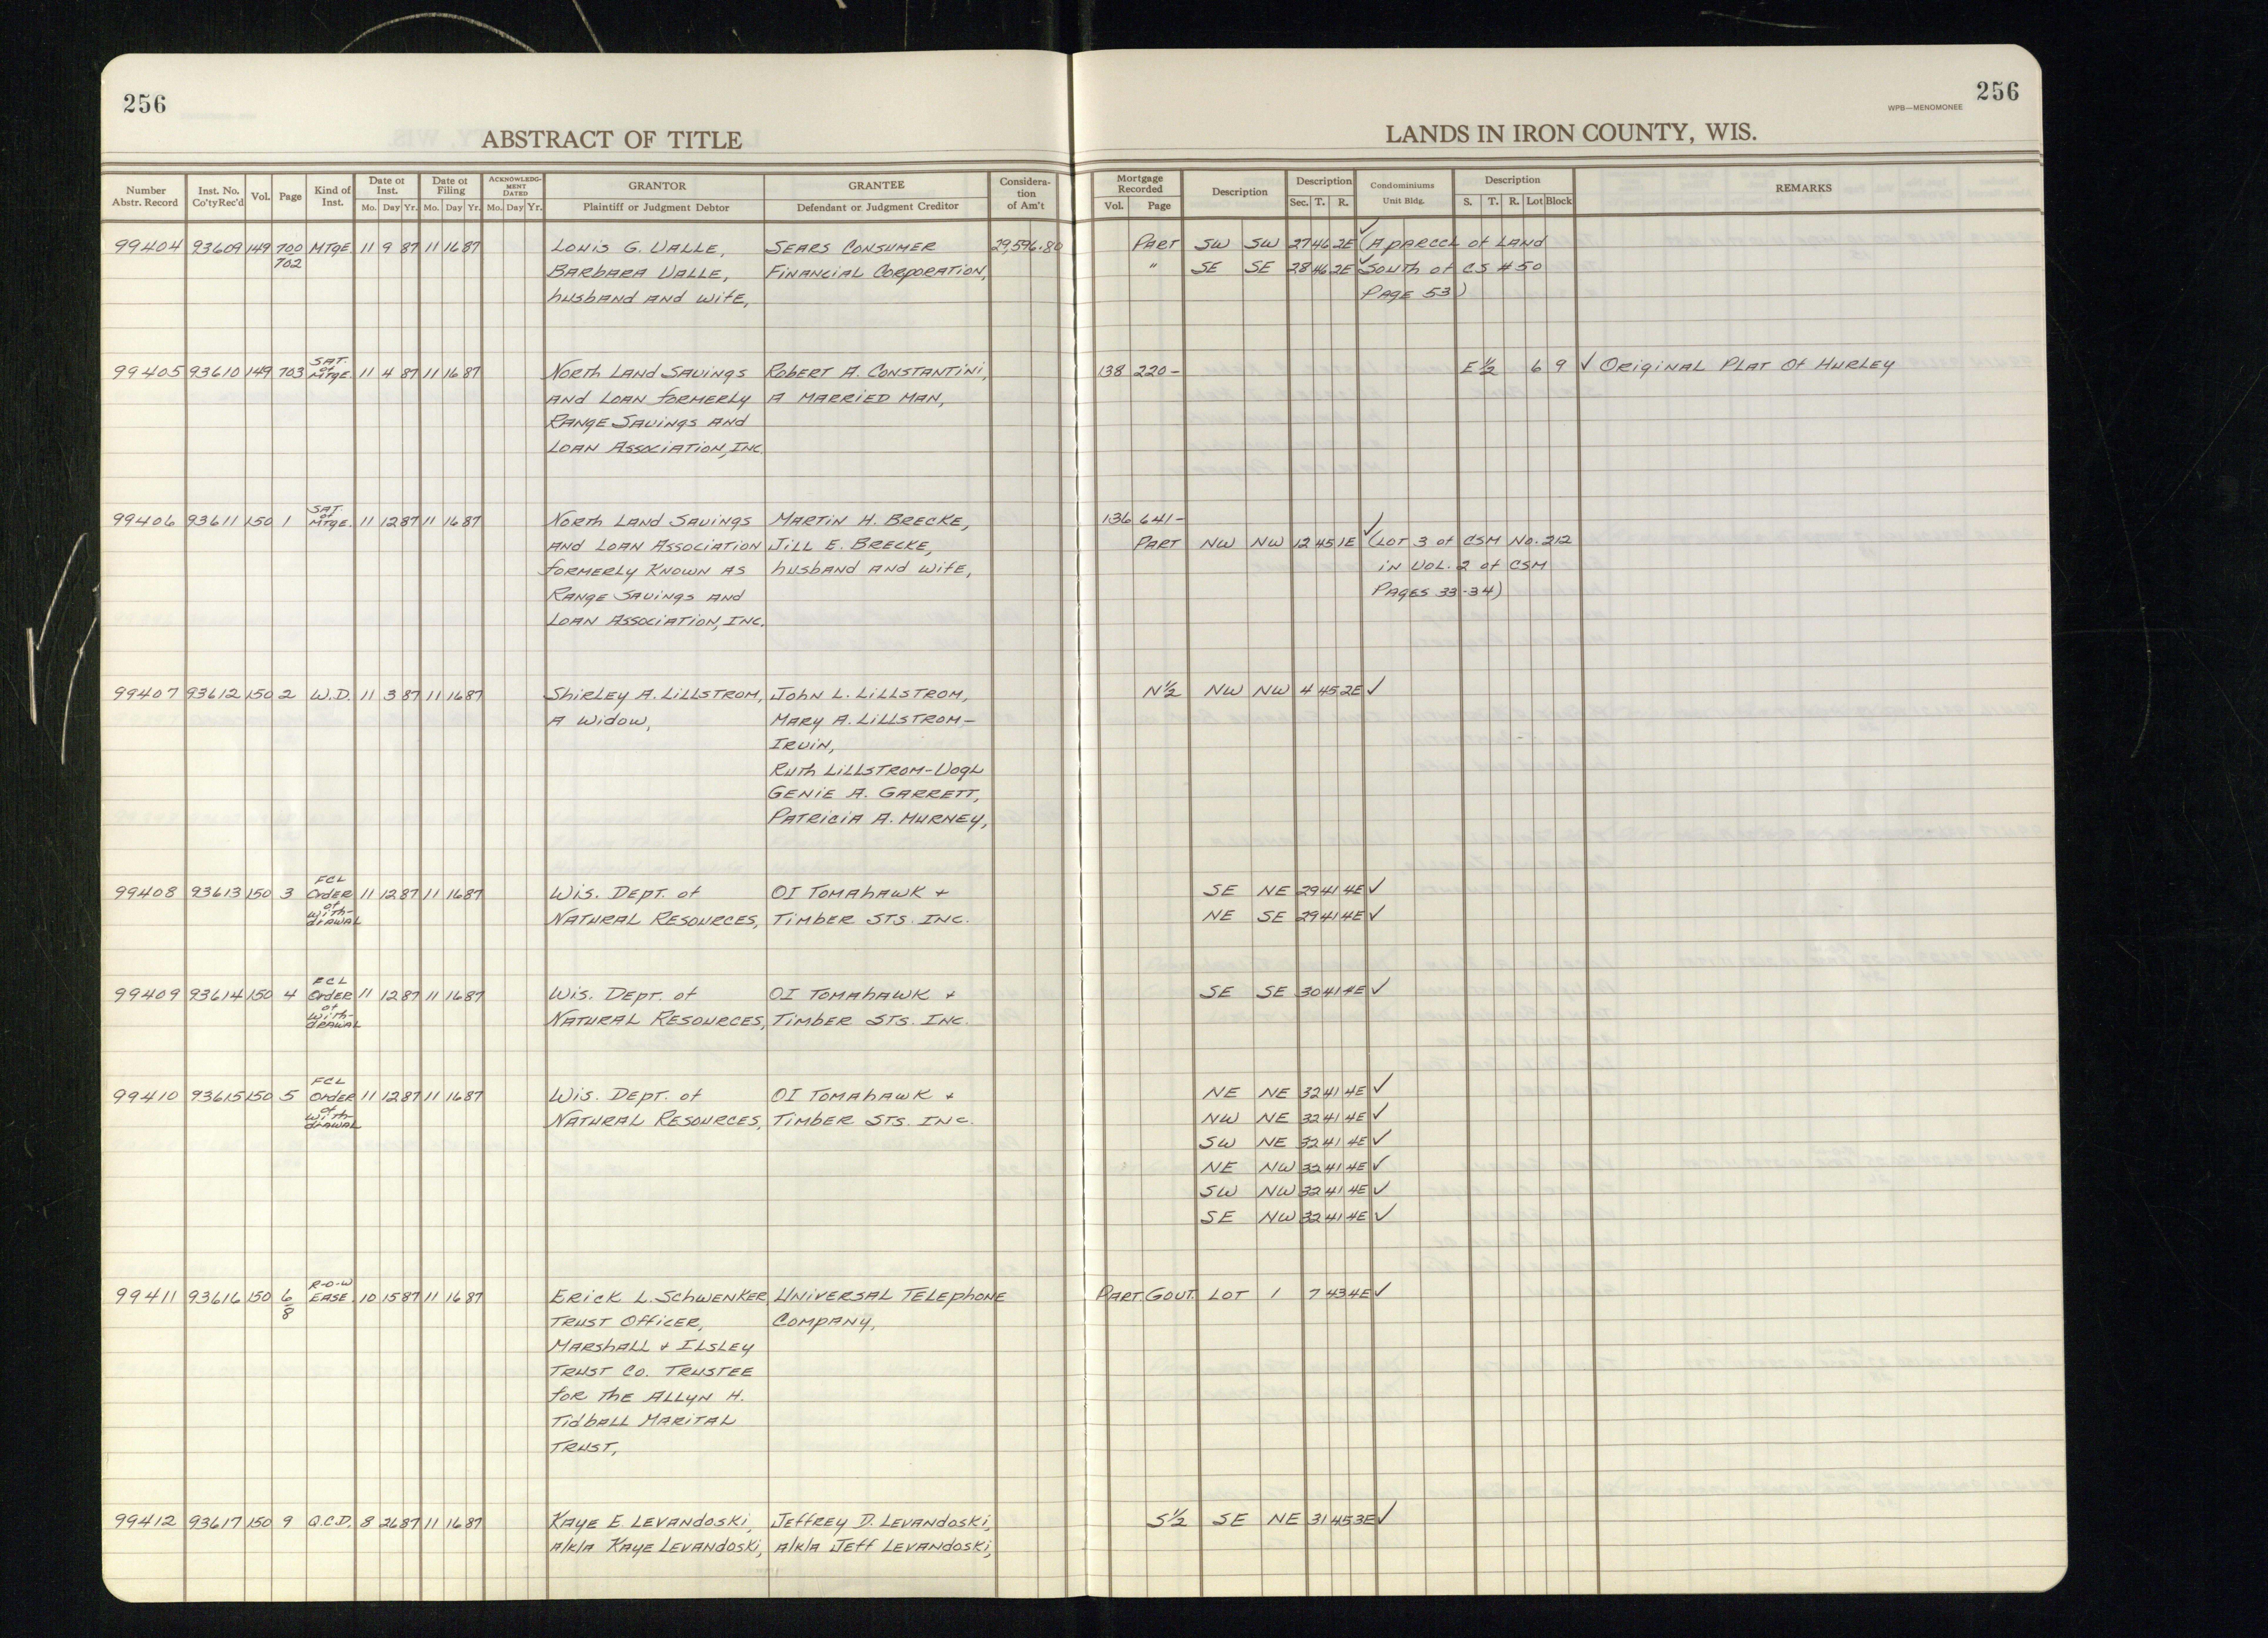 256
256
WPB—MENOMONEE
ABSTRACT OF TITLE
LANDS IN IRON COUNTY, WIS.
Number Abstr. Record Inst. No. Co'ty Rec'd Vol. Page Kind of Inst. Date of Inst. Mo. Day Yr. Date of Filing Mo. Day Yr. ACKNOWLEDGMENT DATED Mo. Day Yr. GRANTOR Plaintiff or Judgment Debtor GRANTEE Defendant or Judgment Creditor Consideration of Am't Mortgage Recorded Vol. Page Description Description Sec. T. R. Condominiums Unit Bldg. Description S. T. R. Lot Block REMARKS
99404 93609 149 700 MTGE. 11 9 87 11 16 87 Louis G. Valle, Sears Consumer 29,596.80 Part SW SW 27 46 2E ✓ (A parcel of land
702 Barbara Valle, Financial Corporation, " SE SE 28 46 2E ✓ South of CS #50
husband and wife, Page 53)
99405 93610 149 703 Sat. of Mtge. 11 4 87 11 16 87 North Land Savings Robert A. Constantini, 138 220- E ½ 6 9 ✓ Original Plat of Hurley
and Loan formerly a married man,
Range Savings and
Loan Association, Inc.
99406 93611 150 1 Sat. of Mtge. 11 12 87 11 16 87 North Land Savings Martin H. Brecke, 136 641-
and Loan Association Jill E. Brecke, Part NW NW 12 45 1E ✓ (Lot 3 of CSM No. 212
formerly known as husband and wife, in Vol. 2 of CSM
Range Savings and Pages 33-34)
Loan Association, Inc.
99407 93612 150 2 W.D. 11 3 87 11 16 87 Shirley A. Lillstrom, John L. Lillstrom, N½ NW NW 4 45 2E ✓
a widow, Mary A. Lillstrom-
Irvin,
Ruth Lillstrom-Vogl
Genie A. Garrett,
Patricia A. Murney,
99408 93613 150 3 FCL Order of With-drawal 11 12 87 11 16 87 Wis. Dept. of OI Tomahawk + SE NE 29 41 4E ✓
Natural Resources, Timber STS. Inc. NE SE 29 41 4E ✓
99409 93614 150 4 FCL Order of With-drawal 11 12 87 11 16 87 Wis. Dept. of OI Tomahawk + SE SE 30 41 4E ✓
Natural Resources, Timber STS. Inc.
99410 93615 150 5 FCL Order of With-drawal 11 12 87 11 16 87 Wis. Dept. of OI Tomahawk + NE NE 32 41 4E ✓
Natural Resources, Timber STS. Inc. NW NE 32 41 4E ✓
SW NE 32 41 4E ✓
NE NW 32 41 4E ✓
SW NW 32 41 4E ✓
SE NW 32 41 4E ✓
99411 93616 150 6/8 R-O-W Ease. 10 15 87 11 16 87 Erick L. Schwenker, Universal Telephone Part Gov't. Lot 1 7 43 4E ✓
Trust Officer, Company,
Marshall + Ilsley
Trust Co. Trustee
for the Allyn H.
Tidball Marital
Trust,
99412 93617 150 9 Q.C.D. 8 26 87 11 16 87 Kaye E. Levandoski, Jeffrey D. Levandoski, S½ SE NE 31 45 3E ✓
a/k/a Kaye Levandoski, a/k/a Jeff Levandoski,